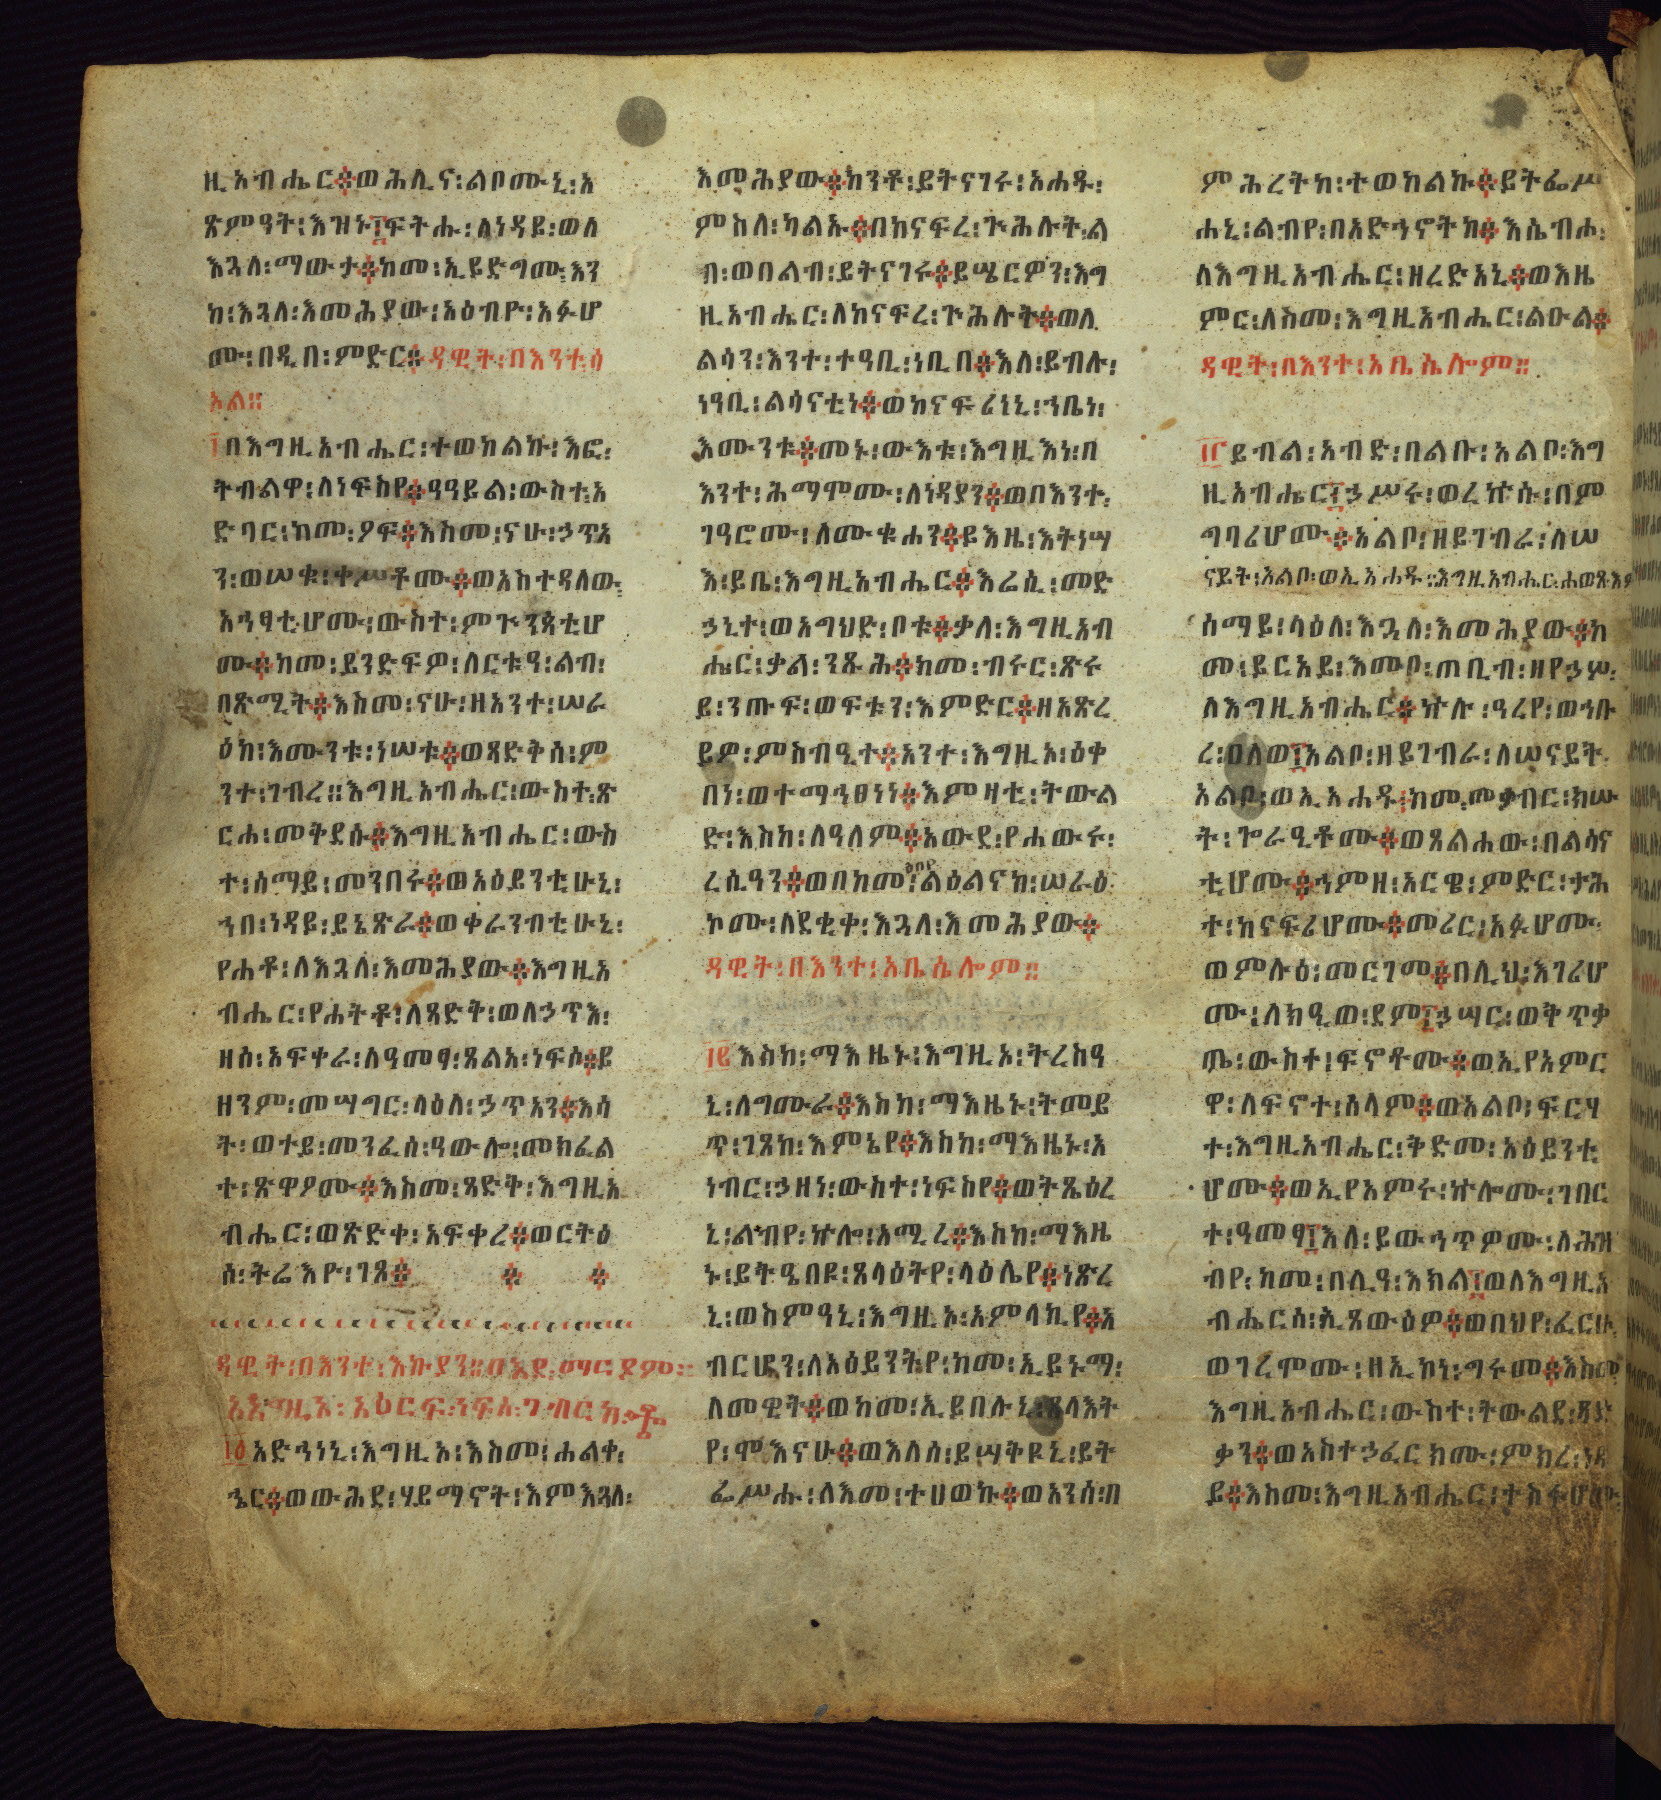 ዚአብሔር፨ወሕሊና፡ልቦሙኒ፡አ
ጽምዓት፡እዝኑ፤ፍትሑ፡ለነዳይ፡ወለ
እጓለ፡ማውታ፨ከመ፡ኢይድግሙ፡እን
ከ፡እጓለ፡እመሕያው፡አዕብዮ፡አፉሆ
ሙ፡በዲበ፡ምድር፨ዳዊት፡በእንተ፡ሳ
አል፡፡
፲በእግዚአብሔር፡ተወከልኩ፡እፎ፡
ትብልዋ፡ለነፍስየ፨ዓዓይል፡ውስተ፡አ
ድባር፡ከመ፡ዖፍ፨እስመ፡ናሁ፡ኃጥአ
ን፡ወሠቁ፡ቀሥቶሙ፨ወአስተዳለው፡
አኅፃቲሆሙ፡ውስተ፡ምጒንጳቲሆ
ሙ፨ከመ፡ይንድፍዎ፡ለርቱዓ፡ልብ፡
በጽሚት፨እስመ፡ናሁ፡ዘአንተ፡ሠራ
ዕከ፡እሙንቱ፡ነሠቱ፨ወጻድቅሰ፡ም
ንተ፡ገብረ፡፡እግዚአብሔር፡ውስተ፡ጽ
ርሐ፡መቅደሱ፨እግዚአብሔር፡ውስ
ተ፡ሰማይ፡መንበሩ፨ወአዕይንቲሁኒ፡
ኀበ፡ነዳይ፡ይኔጽራ፨ወቀራንብቲሁኒ፡
የሐቶ፡ለእጓለ፡እመሕያው፨እግዚአ
ብሔር፡የሐትቶ፡ለጻድቅ፡ወለኃጥእ፡
ዘሰ፡አፍቀራ፡ለዓመፃ፡ጸልአ፡ነፍሶ፨ይ
ዘንም፡መሣግር፡ላዕለ፡ኃጥአን፨እሳ
ት፡ወተይ፡መንፈሰ፡ዓውሎ፡መክፈል
ተ፡ጽዋዖሙ፨እስመ፡ጻድቅ፡እግዚአ
ብሔር፡ወጽድቀ፡አፍቀረ፨ወርትዕ
ሰ፡ትሬእዮ፡ገጹ፨ ፨ ፨
ዳዊት፡በእንተ፡እኩያን፡፡
፲፩አድኅነኒ፡እግዚኦ፡እስመ፡ሐልቀ፡
ኄር፨ወውሕደ፡ሃይማኖት፡እምእጓለ፡
እመሕያው፨ከንቶ፡ይትናገሩ፡አሐዱ፡
ምስለ፡ካልኡ፨በከናፍረ፡ጒሕሉት፡ል
ብ፡ወበልብ፡ይትናገሩ፨ይሤርዎን፡እግ
ዚአብሔር፡ለከናፍረ፡ጒሕሉት፨ወለ
ልሳን፡እንተ፡ተዓቢ፡ነቢበ፨እለ፡ይብሉ፡
ነዓቢ፡ልሳናቲነ፨ወከናፍሪነኒ፡ኀቤነ፡
እሙንቱ፨መኑ፡ውእቱ፡እግዚእነ፡በ
እንተ፡ሕማሞሙ፡ለነዳያን፨ወበእንተ፡
ገዓሮሙ፡ለሙቁሐን፨ይእዜ፡እትነሣ
እ፡ይቤ፡እግዚአብሔር፨እሬሲ፡መድ
ኃኒተ፡ወአግህድ፡ቦቱ፨ቃለ፡እግዚአብ
ሔር፡ቃል፡ንጹሕ፨ከመ፡ብሩር፡ጽሩ
ይ፡ንጡፍ፡ወፍቱን፡እምድር፨ዘአጽረ
ይዎ፡ምስብዒተ፨አንተ፡እግዚኦ፡ዕቀ
በነ፡ወተማኅፀነነ፨እምዛቲ፡ትውል
ድ፡እስከ፡ለዓለም፨አውደ፡የሐውሩ፡
ረሲዓን፨ወበከመ፡ዕበየ፡ልዕልናከ፡ሠራዕ
ኮሙ፡ለደቂቀ፡እጓለ፡እመሕያው፨
ዳዊት፡በእንተ፡አቤሴሎም፡፡
፲፪እስከ፡ማእዜኑ፡እግዚኦ፡ትረስዓ
ኒ፡ለግሙራ፨እስከ፡ማእዜኑ፡ትመይ
ጥ፡ገጸከ፡እምኔየ፨እስከ፡ማእዜኑ፡አ
ነብር፡ኃዘነ፡ውስተ፡ነፍስየ፨ወትጼዕረ
ኒ፡ልብየ፡ኵሎ፡አሚረ፨እስከ፡ማእዜ
ኑ፡ይትዔበዩ፡ጸላዕትየ፡ላዕሌየ፨ነጽረ
ኒ፡ወስምዓኒ፡እግዚኦ፡አምላኪየ፨አ
ብርሆን፡ለአዕይንትየ፡ከመ፡ኢይኑማ፡
ለመዊት፨ወከመ፡ኢይበሉኒ፡ጸላእት
የ፡ሞእናሁ፨ወእለሰ፡ይሣቅዩኒ፡ይት
ፌሥሑ፡ለእመ፡ተሀወኩ፨ወአንሰ፡በ
ምሕረትከ፡ተወከልኩ፨ይትፌሥ
ሐኒ፡ልብየ፡በአድኅኖትከ፨እሴብሖ፡
ለእግዚአብሔር፡ዘረድአኒ፨ወእዜ
ምር፡ለስመ፡እግዚአብሔር፡ልዑል፨
ዳዊት፡በእንተ፡አቤሴሎም፡፡
፲፫ይብል፡አብድ፡በልቡ፡አልቦ፡እግ
ዚአብሔር፤ኃሥሩ፡ወረኵሱ፡በም
ግባሪሆሙ፨አልቦ፡ዘይገብራ፡ለሠ
ናይት፡አልቦ፡ወኢአሐዱ፡፡እግዚአብሔር፡ሐወጸ፡እም
ሰማይ፡ላዕለ፡እጓለ፡እመሕያው፨ከ
መ፡ይርአይ፡እመቦ፡ጠቢብ፡ዘየኃሦ፡
ለእግዚአብሔር፨ኵሉ፡ዓረየ፡ወኅቡ
ረ፡ዐለወ፤አልቦ፡ዘይገብራ፡ለሠናይት፡
አልቦ፡ወኢአሐዱ፡ከመ፡መቃብር፡ክሡ
ት፡ጐራዒቶሙ፨ወጸልሐው፡በልሳና
ቲሆሙ፨ኅምዘ፡አርዌ፡ምድር፡ታሕ
ተ፡ከናፍሪሆሙ፨መሪር፡አፉሆሙ፡
ወምሉዕ፡መርገመ፨በሊህ፡እገሪሆ
ሙ፡ለክዒወ፡ደም፤ኃሣር፡ወቅጥቃ
ጤ፡ውስተ፡ፍኖቶሙ፨ወኢየአምር
ዋ፡ለፍኖተ፡ሰላም፨ወአልቦ፡ፍርሃ
ተ፡እግዚአብሔር፡ቅድመ፡አዕይንቲ
ሆሙ፨ወኢየአምሩ፡ኵሎሙ፡ገበር
ተ፡ዓመፃ፤እለ፡ይውኅጥዎሙ፡ለሕዝ
ብየ፡ከመ፡በሊዓ፡እክል፤ወለእግዚአ
ብሔርሰ፡ኢጸውዕዎ፨ወበህየ፡ፈርሁ፡
ወገረሞሙ፡ዘኢኮነ፡ግሩመ፨እስመ
እግዚአብሔር፡ውስተ፡ትውልደ፡ጻድ
ቃን፨ወአስተኃፈርክሙ፡ምክረ፡ነዳ
ይ፨እስመ፡እግዚአብሔር፡ተስፋሆሙ፡